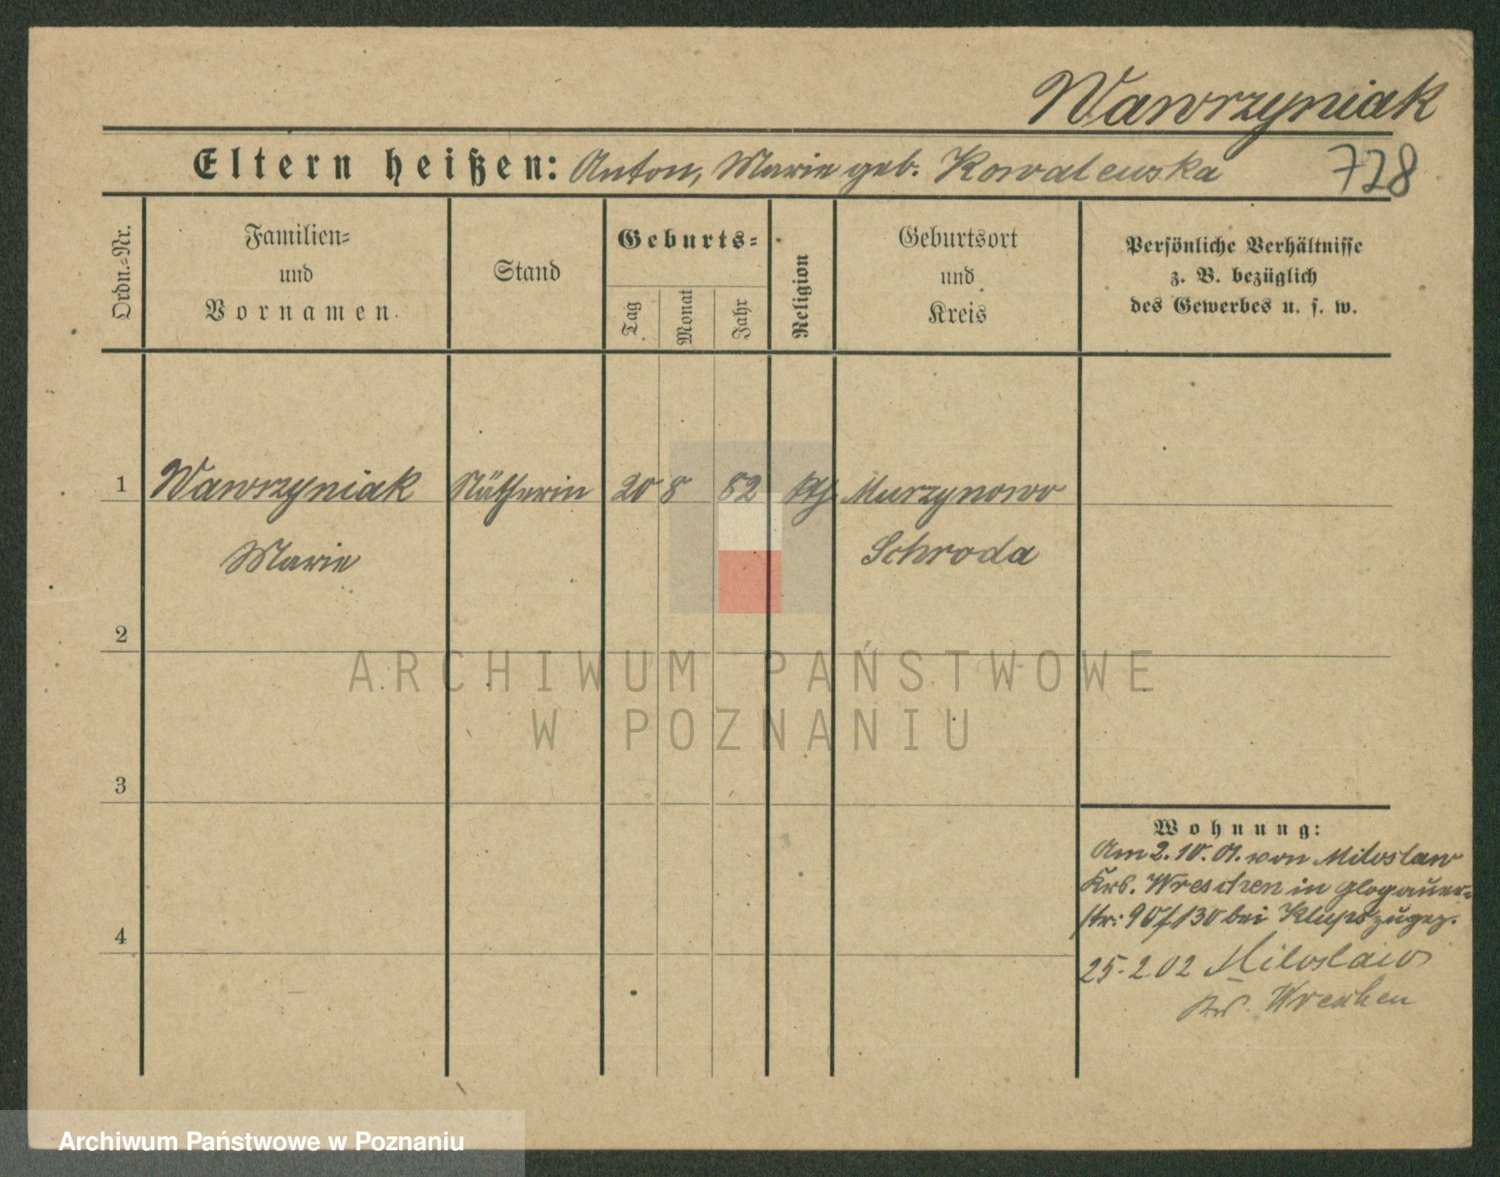 Wawrzyniak
Eltern heißen: Anton, Marie geb. Kowalewska
728
Ordn.-Nr.
Familien-
und
Vornamen.
Stand
Geburts-
Tag
Monat
Jahr
Religion
Geburtsort
und
Kreis
Persönliche Verhältnisse
z. B. bezüglich
des Gewerbes u. s. w.
1 Wawrzyniak Nätherin 20 8 82 kth Murzynowo
Marie Schroda
2
3
4
Wohnung:
Am 2.10.01. von Miloslaw
Krs. Wreschen in Glogauer-
str: 90/130 bei zugez.
25.2.02 Miloslaw
Kr. Wreschen
ARCHIWUM PAŃSTWOWE
W POZNANIU
Archiwum Państwowe w Poznaniu